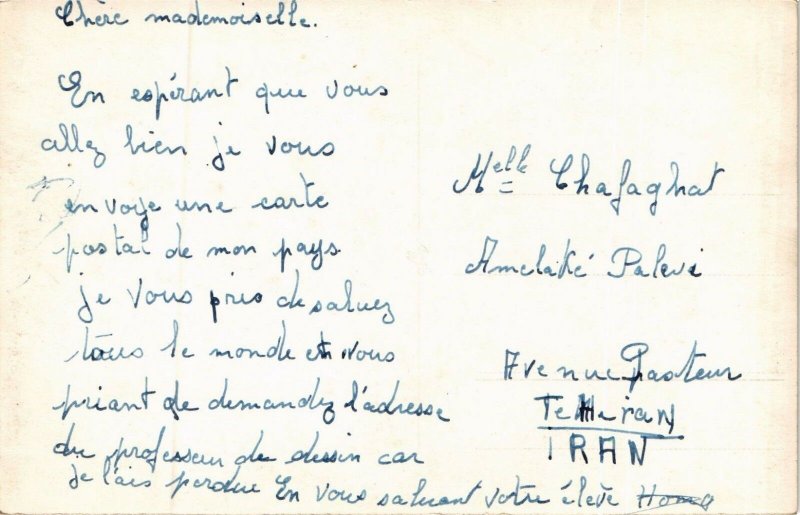 Chère mademoiselle.
En espérant que vous
allez bien je vous
envoye une carte
postal de mon pays
je vous pris de saluez
tous le monde et vous
priant de demandez l'adresse
du professeur de dessin car
je l'ais perdue En vous saluant votre élève Homa
Melle Chafaghat
Amelaké Palevi
Avenue Pasteur
TeHeran
IRAN